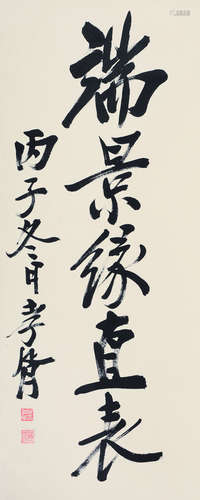 端景緣直表
丙子冬月孝胥